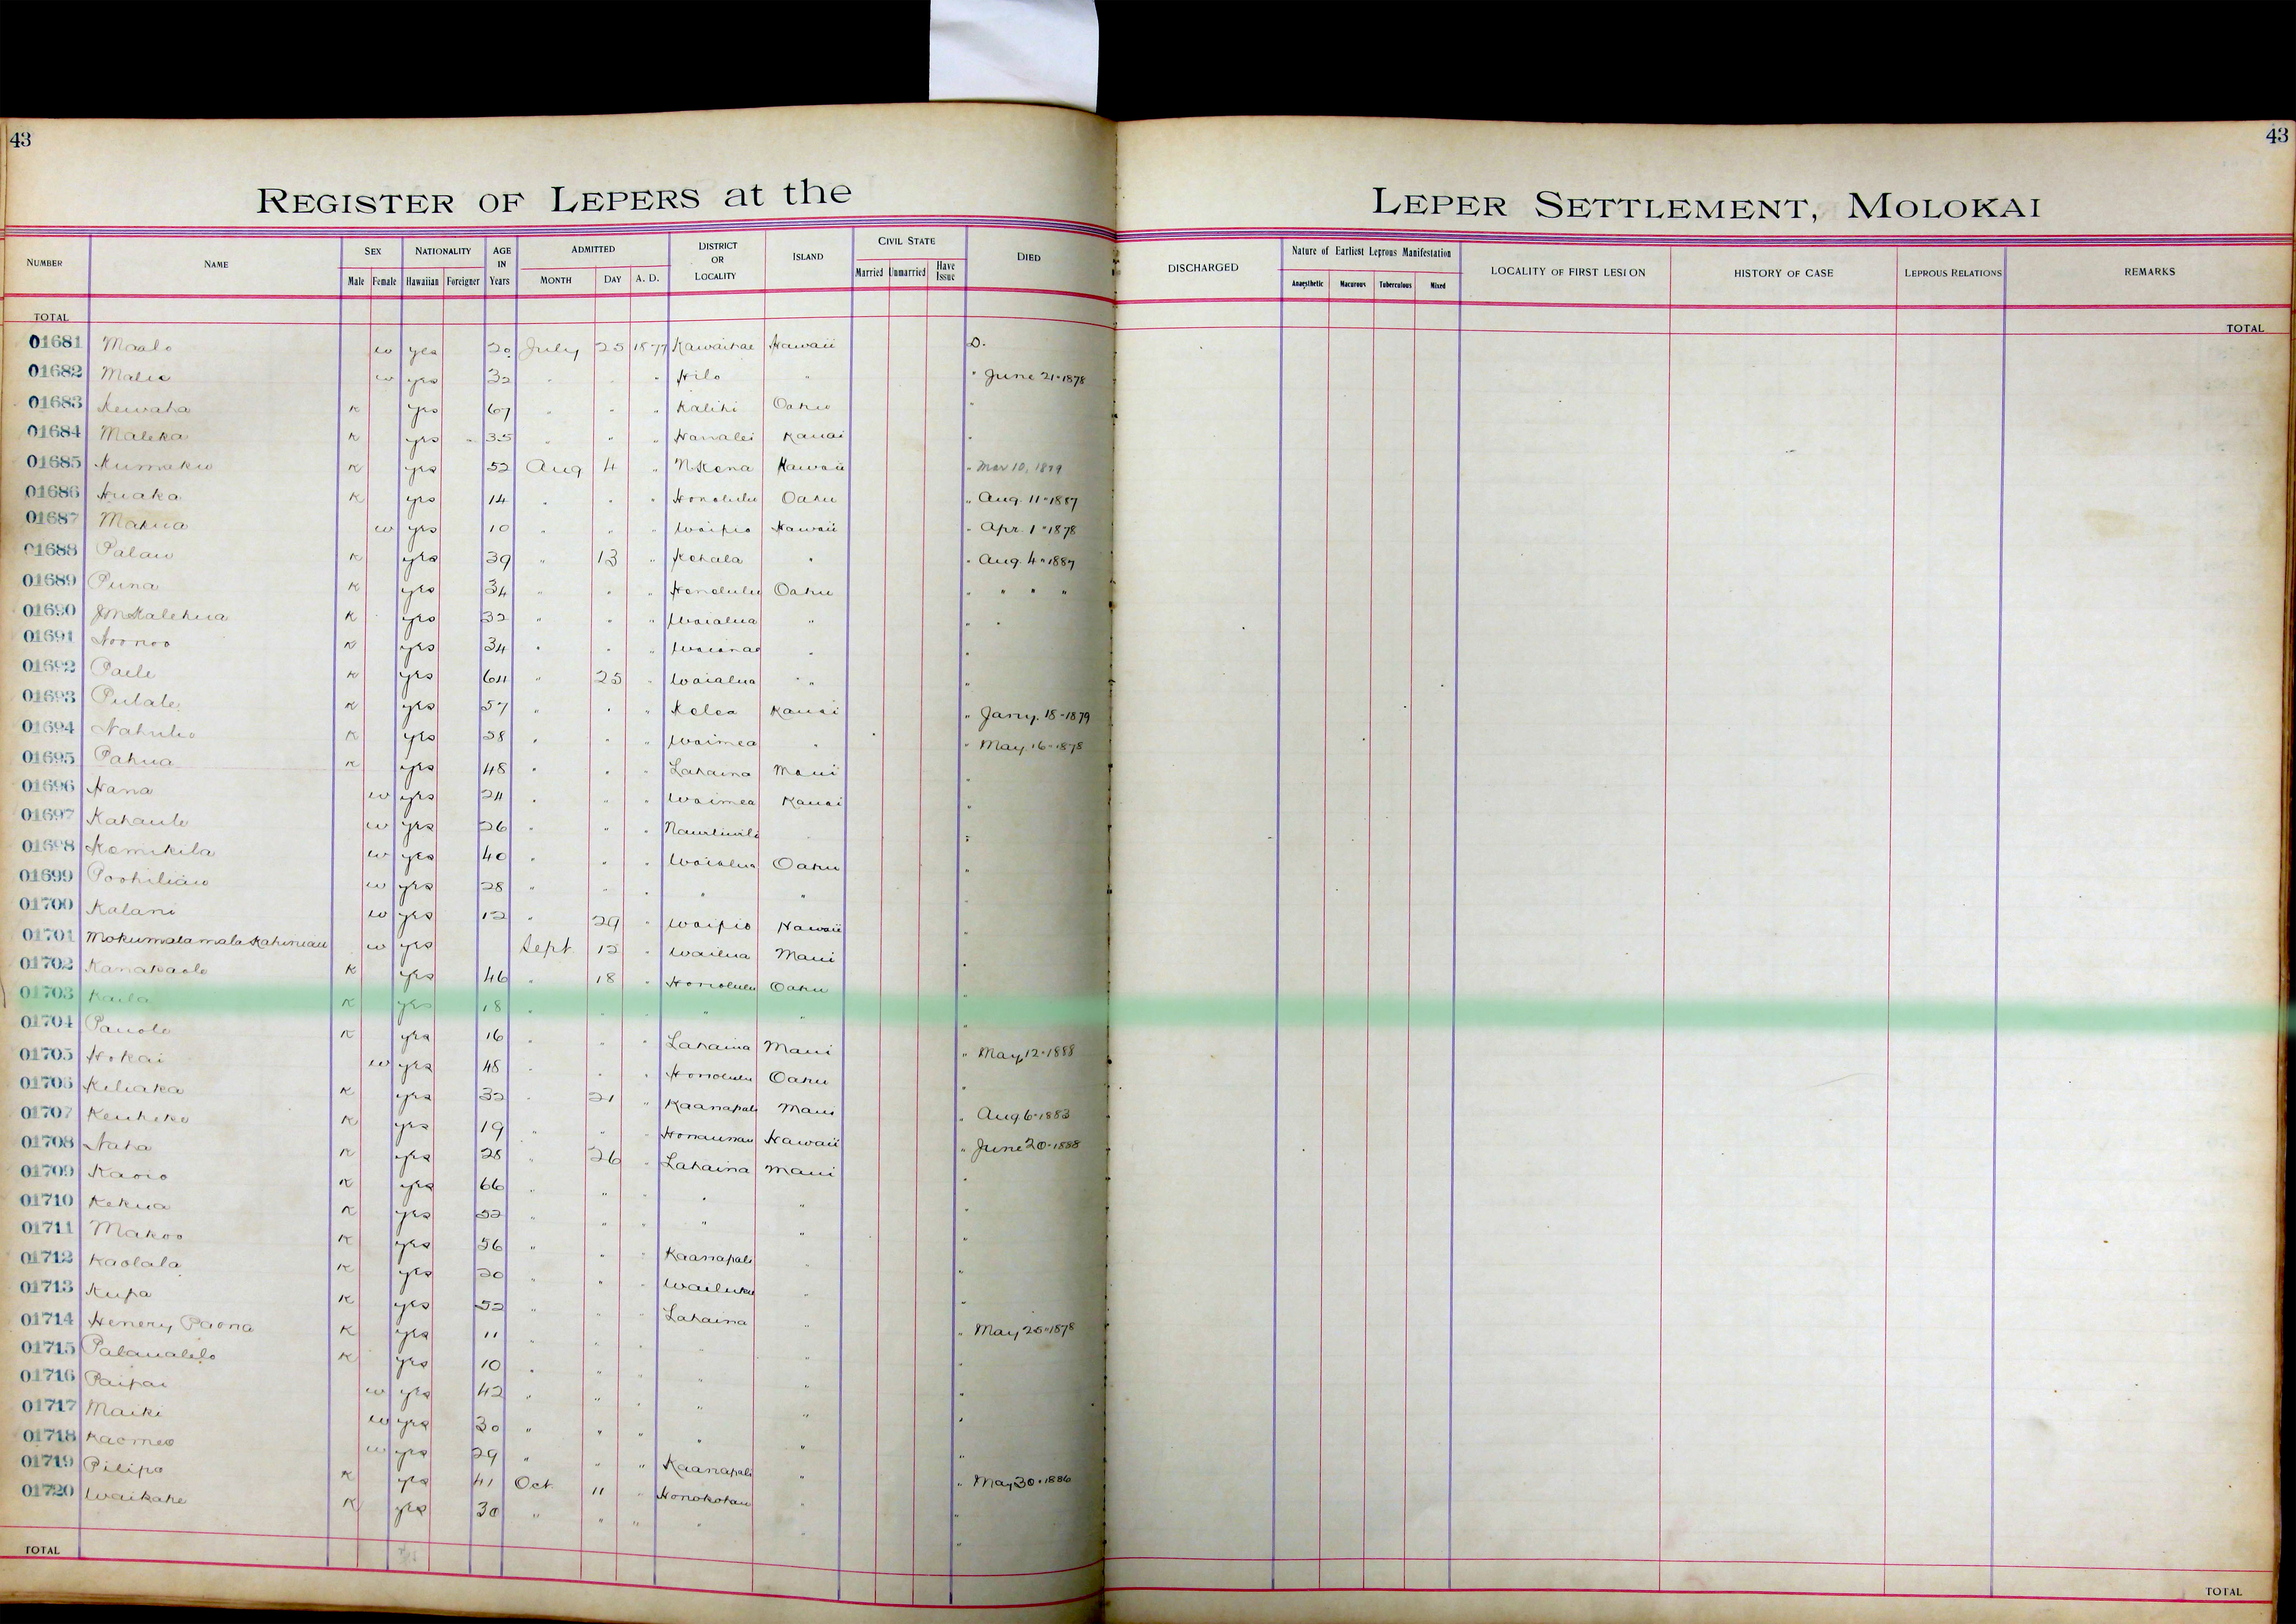 43
43
REGISTER OF LEPERS at the LEPER SETTLEMENT, MOLOKAI
NUMBER NAME SEX Male Female NATIONALITY Hawaiian Foreigner AGE IN Years ADMITTED MONTH DAY A. D. DISTRICT OR LOCALITY ISLAND CIVIL STATE Married Unmarried Have Issue DIED DISCHARGED Nature of Earliest Leprous Manifestation Anaesthetic Macurous Tuberculous Mixed LOCALITY OF FIRST LESION HISTORY OF CASE LEPROUS RELATIONS REMARKS
TOTAL TOTAL
01681 Maalo w yes 20 July 25 1877 Kawaihae Hawaii D.
01682 w yes 32 " " " Hilo " " June 21-1878
01683 Kewaha K yes 67 " " " Kalihi Oahu "
01684 Maleka K yes 35 " " " Hanalei Kauai "
01685 Kumaku K yes 52 Aug 4 " N Kona Hawaii " Mar 10, 1879
01686 Huaka K yes 14 " " " Honolulu Oahu " Aug. 11-1887
01687 Makua w yes 10 " " " Waipio Hawaii " Apr. 1-1878
01688 Palau K yes 39 " 13 " Kohala " " Aug. 4-1887
01689 Puna K yes 34 " " " Honolulu Oahu " " " "
01690 J M Kalehua K yes 32 " " " Waialua " " "
01691 Noonoo K yes 34 " " " Waianae " "
01692 Paele K yes 64 " 25 " Waialua " "
01693 Pulale K yes 57 " " " Kolea Kauai " Jany. 18-1879
01694 K yes 28 " " " Waimea " " May 16-1878
01695 Pahua K yes 48 " " " Lahaina Maui "
01696 Hana w yes 24 " " " Waimea Kauai "
01697 Kahaule w yes 26 " " " Nawiliwili "
01698 Kamikila w yes 40 " " " Waialua Oahu "
01699 Poohiliau w yes 28 " " " " "
01700 Kalani w yes 12 " 29 " Waipio Hawaii
01701 Mokumalamala Kahiniau w yes Sept 12 " Wailua Maui "
01702 Kanakaole K yes 46 " 18 " Honolulu Oahu
01703 Kaila K yes 18 " " " " "
01704 Pauole K yes 16 " " " Lahaina Maui " May 12-1888
01705 Hokai w yes 48 " " " Honolulu Oahu "
01706 Keliaka K yes 32 " 21 " Kaanapali Maui " Aug 6-1883
01707 K yes 19 " " " Honaunau Hawaii " June 20-1888
01708 Naha K yes 28 " 26 " Lahaina Maui "
01709 Kaoio K yes 66 " " " " " "
01710 Kekua K yes 52 " " " " " "
01711 Makoo K yes 56 " " " Kaanapali " "
01712 Kaolala K yes 20 " " " Wailuku " "
01713 Kupa K yes 52 " " " Lahaina " " May 25-1878
01714 Henery Paona K yes 11 " " " " "
01715 Palaualelo K yes 10 " " " " " "
01716 Paipai w yes 42 " " " " " "
01717 Maiki w yes 30 " " " " "
01718 Kaomea w yes 29 " " " Kaanapali " " May 30-1886
01719 Pilipo K yes 41 Oct 11 " Honokohau " "
01720 Waikahe K yes 30 " " " " " "
TOTAL TOTAL